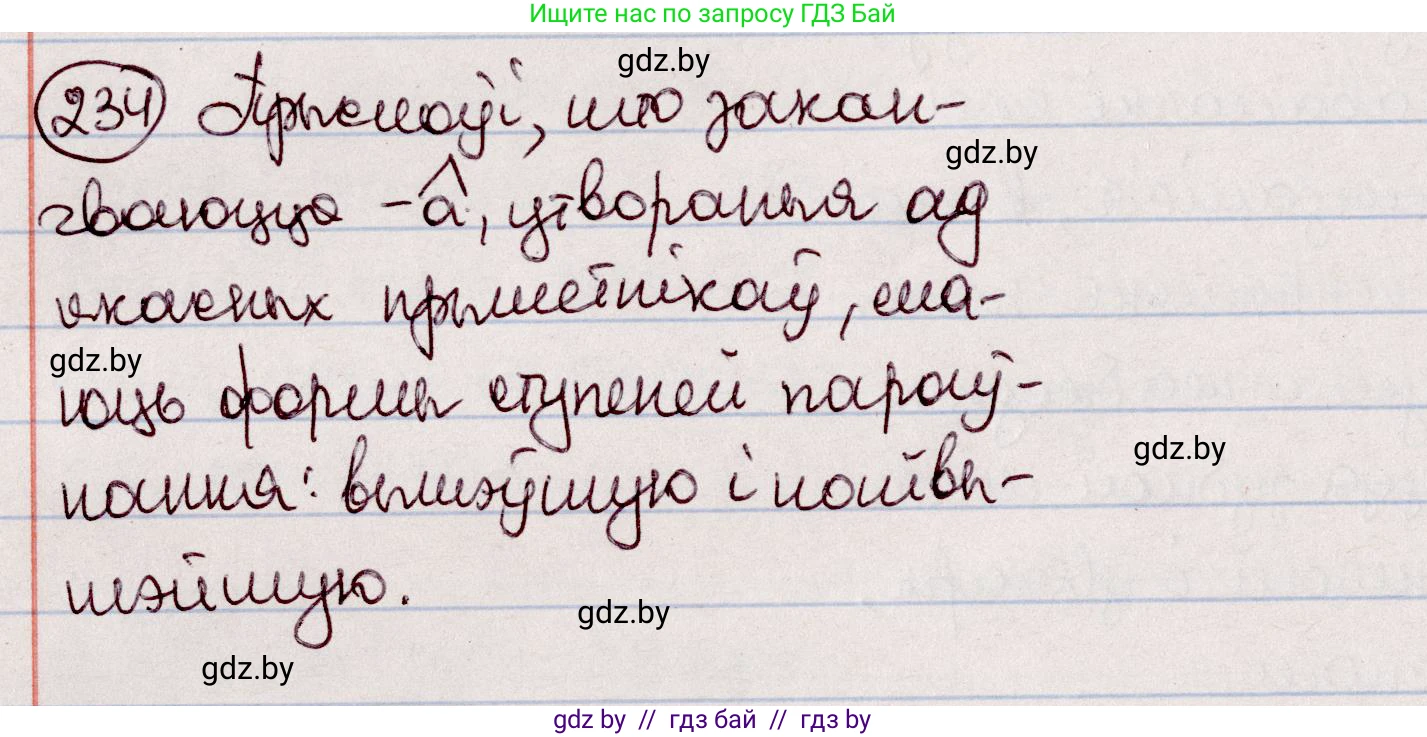 Ищите нас по запросу ГДЗ Бай
gdz.by
234 Прыслоўі, што закан-
gdz.by
чваюцца -а, утвораныя ад
якасных прыметнікаў, ма-
gdz.by
юць формы ступеней параў-
gdz.by
нання: вышэйшую і найвы-
шэйшую.
gdz.by
gdz.by
gdz by // гдз бай // гдз by